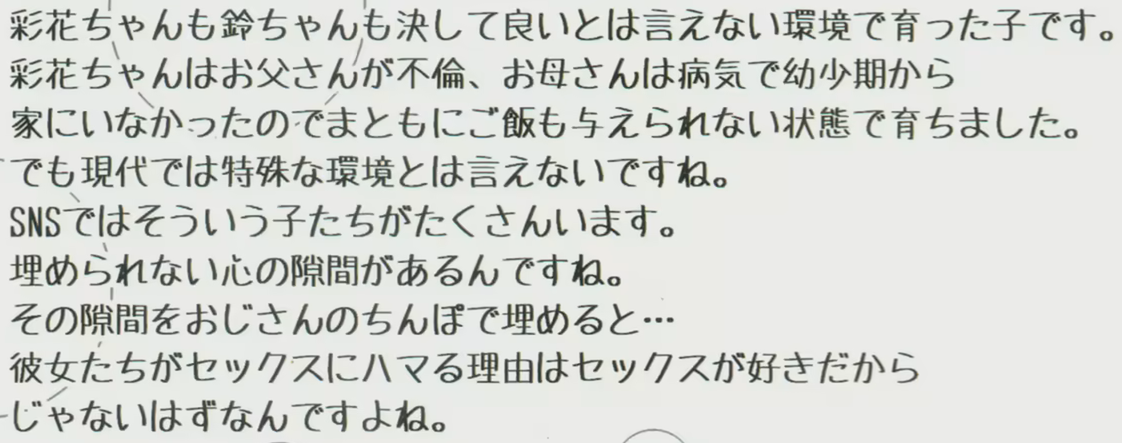 彩花ちゃんも鈴ちゃんも決して良いとは言えない環境で育った子です。
彩花ちゃんはお父さんが不倫、お母さんは病気で幼少期から
家にいなかったのでまともにご飯も与えられない状態で育ちました。
でも現代では特殊な環境とは言えないですね。
SNSではそういう子たちがたくさんいます。
埋められない心の隙間があるんですね。
その隙間をおじさんのちんぽで埋めると…
彼女たちがセックスにハマる理由はセックスが好きだから
じゃないはずなんですよね。